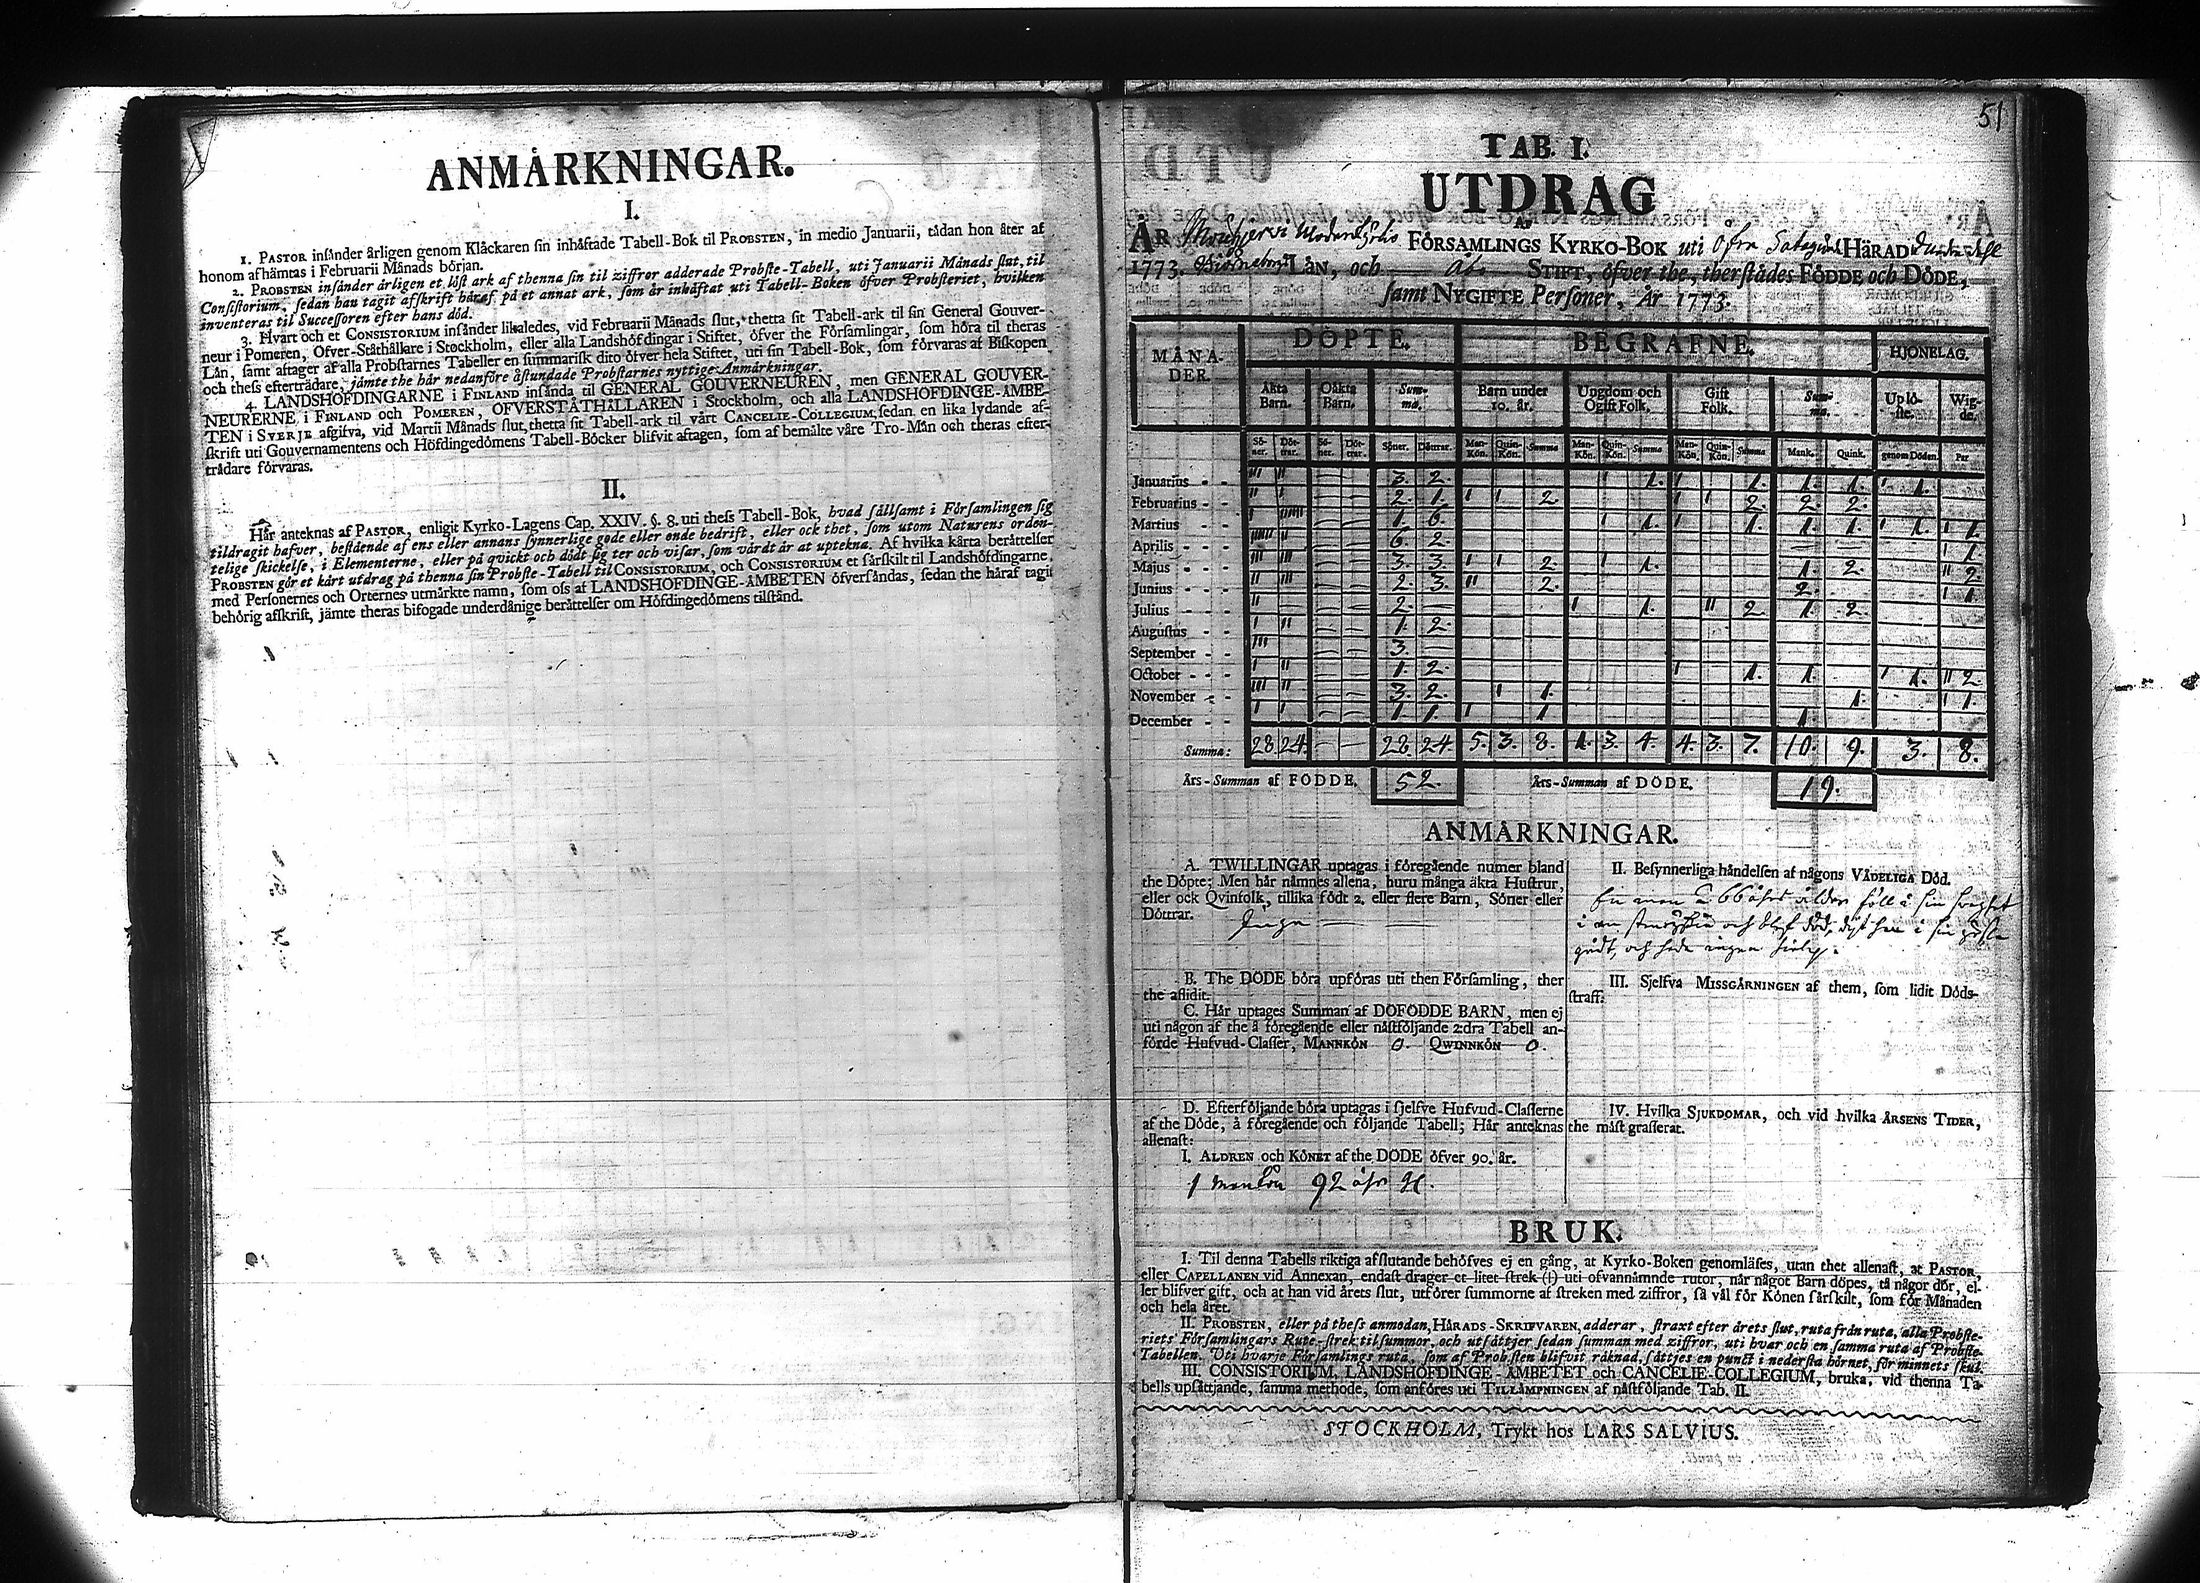 ANMÄRKNINGAR.
I.
1. PASTOR insänder årligen genom Klåckaren sin inhäftade Tabell-Bok til PROBSTEN, in medio Januarii, tådan hon åter af
honom afhämtas i Februarii Månads början.
2. PROBSTEN insänder årligen et löst ark af thenna sin til ziffror adderade Probste-Tabell, uti Januarii Månads slut, til
Consistorium, sedan han tagit afskrift häraf på et annat ark, som är inhäftat uti Tabell-Boken öfver Probsteriet, hvilken
inventeras til Successoren efter hans död.
3. Hvart och et CONSISTORIUM insänder likaledes, vid Februarii Månads slut, thetta sit Tabell-ark til sin General Gouver-
neur i Pomeren, Ofver-Ståthållare i Stockholm, eller alla Landshöfdingar i Stiftet, öfver the Församlingar, som höra til theras
Län, samt aftager af alla Probstarnes Tabeller en summarisk dito öfver hela Stiftet, uti sin Tabell-Bok, som förvaras af Biskopen
och thess efterträdare, jämte the här nedanföre åstundade Probstarnes nyttige Anmärkningar.
4. LANDSHÖFDINGARNE i FINLAND insända til GENERAL GOUVERNEUREN, men GENERAL GOUVER-
NEURERNE i FINLAND och POMEREN, ÖFVERSTÅTHÅLLAREN i Stockholm, och alla LANDSHÖFDINGE-ÄMBE-
TEN i SVERJE afgifva, vid Martii Månads slut, thetta sit Tabell-ark til vårt CANCELIE-COLLEGIUM, sedan en lika lydande af-
skrift uti Gouvernamentens och Höfdingedömens Tabell-Böcker blifvit aftagen, som af bemälte våre Tro-Män och theras efter-
trädare förvaras.
II.
Här anteknas af PASTOR, enligit Kyrko-Lagens Cap. XXIV. §. 8. uti thess Tabell-Bok, hvad sällsamt i Församlingen sig
tildragit hafver, bestående af ens eller annans synnerlige gode eller onde bedrift, eller ock thet, som utom Naturens orden-
telige skickelse, i Elementerne, eller på qvickt och dödt sig ter och visar, som värdt är at uptekna. Af hvilka kårta berättelser
PROBSTEN gör et kårt utdrag på thenna sin Probste-Tabell til CONSISTORIUM, och CONSISTORIUM et särskilt til Landshöfdingarne,
med Personernes och Orternes utmärkte namn, som oss af LANDSHÖFDINGE-ÄMBETEN öfversändas, sedan the häraf tagit
behörig afskrift, jämte theras bifogade underdånige berättelser om Höfdingedömens tilstånd.
51
TAB. I.
UTDRAG
AF
ÅR Moderkyrkio FÖRSAMLINGS KYRKO-BOK uti Öfra Satagunda HÄRAD
1773. Biörneborgs LÄN, och Åbo STIFT, öfver the, therstädes FÖDDE och DÖDE,
samt NYGIFTE Personer, År 1773.
MÅNA-DER. DÖPTE. BEGRAFNE. HJONELAG.
Äkta Barn. Oäkta Barn. Summa. Barn under 10. år. Ungdom och Ogift Folk. Gift Folk. Summa. Uplöste. Wigde.
Söner. Döttrar. Söner. Döttrar. Söner. Döttrar. Man-Kön. Quin-Kön. Summa Man-Kön. Quin-Kön. Summa Man-Kön. Quin-Kön. Summa Mank. Quink. genom Döden. Par
Januarius - - III II — — 3. 2. I 1. I 1. 1. 1. I 1.
Februarius - - II I — — 2. 1. I I 2. I I 2. 2. 2.
Martius - - I IIIIII — — 1. 6. I 1. I 1. 1. 1. I 1. I 1.
Aprilis - - - IIIIII II — — 6. 2. — — I 1.
Majus - - - III III — — 3. 3. I I 2. I 1. 1. 2. II 2.
Junius - - - II III — — 2. 3. II 2. 2. I 1.
Julius - - - II — — — 2. — I 1. II 2 1. 2.
Augustus - - I II — — 1. 2.
September - - III — — 3.
October - - - I II — — 1. 2. I 1. 1. I 1. II 2
November - - III II — — 3. 2. I 1. 1. I 1.
December - - I I — — 1. 1. I 1 1.
Summa: 28 24. — — 28. 24. 5. 3. 8. 1. 3. 4. 4. 3. 7. 10. 9. 3. 8.
Års-Summan af FÖDDE. 52. Års-Summan af DÖDE. 19.
ANMÄRKNINGAR.
A. TWILLINGAR uptagas i föregående numer bland
the Döpte; Men här nämnes allena, huru många äkta Hustrur,
eller ock Qvinfolk, tillika födt 2. eller flere Barn, Söner eller
Döttrar.
Inga — —
B. The DÖDE böra upföras uti then Församling, ther
the aflidit.
C. Här uptages Summan af DÖFÖDDE BARN, men ej
uti någon af the å föregående eller nästföljande 2:dra Tabell an-
förde Hufvud-Classer, MANNKÖN 0. QWINNKÖN 0.
D. Efterföljande böra uptagas i sjelfve Hufvud-Classerne
af the Döde, å föregående och följande Tabell; Här anteknas
allenast:
I. ÅLDREN och KÖNET af the DÖDE öfver 90. år.
1 mankön 92 åhr gl.
II. Besynnerliga händelsen af någons VÅDELIGA Död.
En man à 66 åhrs ålder föll i sin
i en och blef död, i sin
och hade ingen hielp.
III. Sjelfva MISSGÄRNINGEN af them, som lidit Döds-
straff:
IV. Hvilka SJUKDOMAR, och vid hvilka ÅRSENS TIDER,
the mäst grasserat.
BRUK.
I. Til denna Tabells riktiga afslutande behöfves ej en gång, at Kyrko-Boken genomläses, utan thet allenast, at PASTOR,
eller CAPELLANEN vid Annexan, endast drager et litet strek (I) uti ofvannämnde rutor, när något Barn döpes, tå någor dör, el-
ler blifver gift, och at han vid årets slut, utförer summorne af streken med ziffror, så väl för Könen särskilt, som för Månaden
och hela året.
II. PROBSTEN, eller på thess anmodan, HÄRADS-SKRIFVAREN, adderar, straxt efter årets slut, ruta från ruta, alla Probste-
riets Församlingars Rute-strek til summor, och utsättjer sedan summan med ziffror, uti hvar och en samma ruta af Probste-
Tabellen. Uti hvarje Församlings ruta, som af Probsten blifvit räknad, sättjes en punct i nedersta hörnet, för minnets skul.
III. CONSISTORIUM, LANDSHÖFDINGE-ÄMBETET och CANCELIE-COLLEGIUM, bruka, vid thenna Ta-
bells upsättjande, samma methode, som anföres uti TILLÄMPNINGEN af nästföljande Tab. II.
STOCKHOLM, Trykt hos LARS SALVIUS.